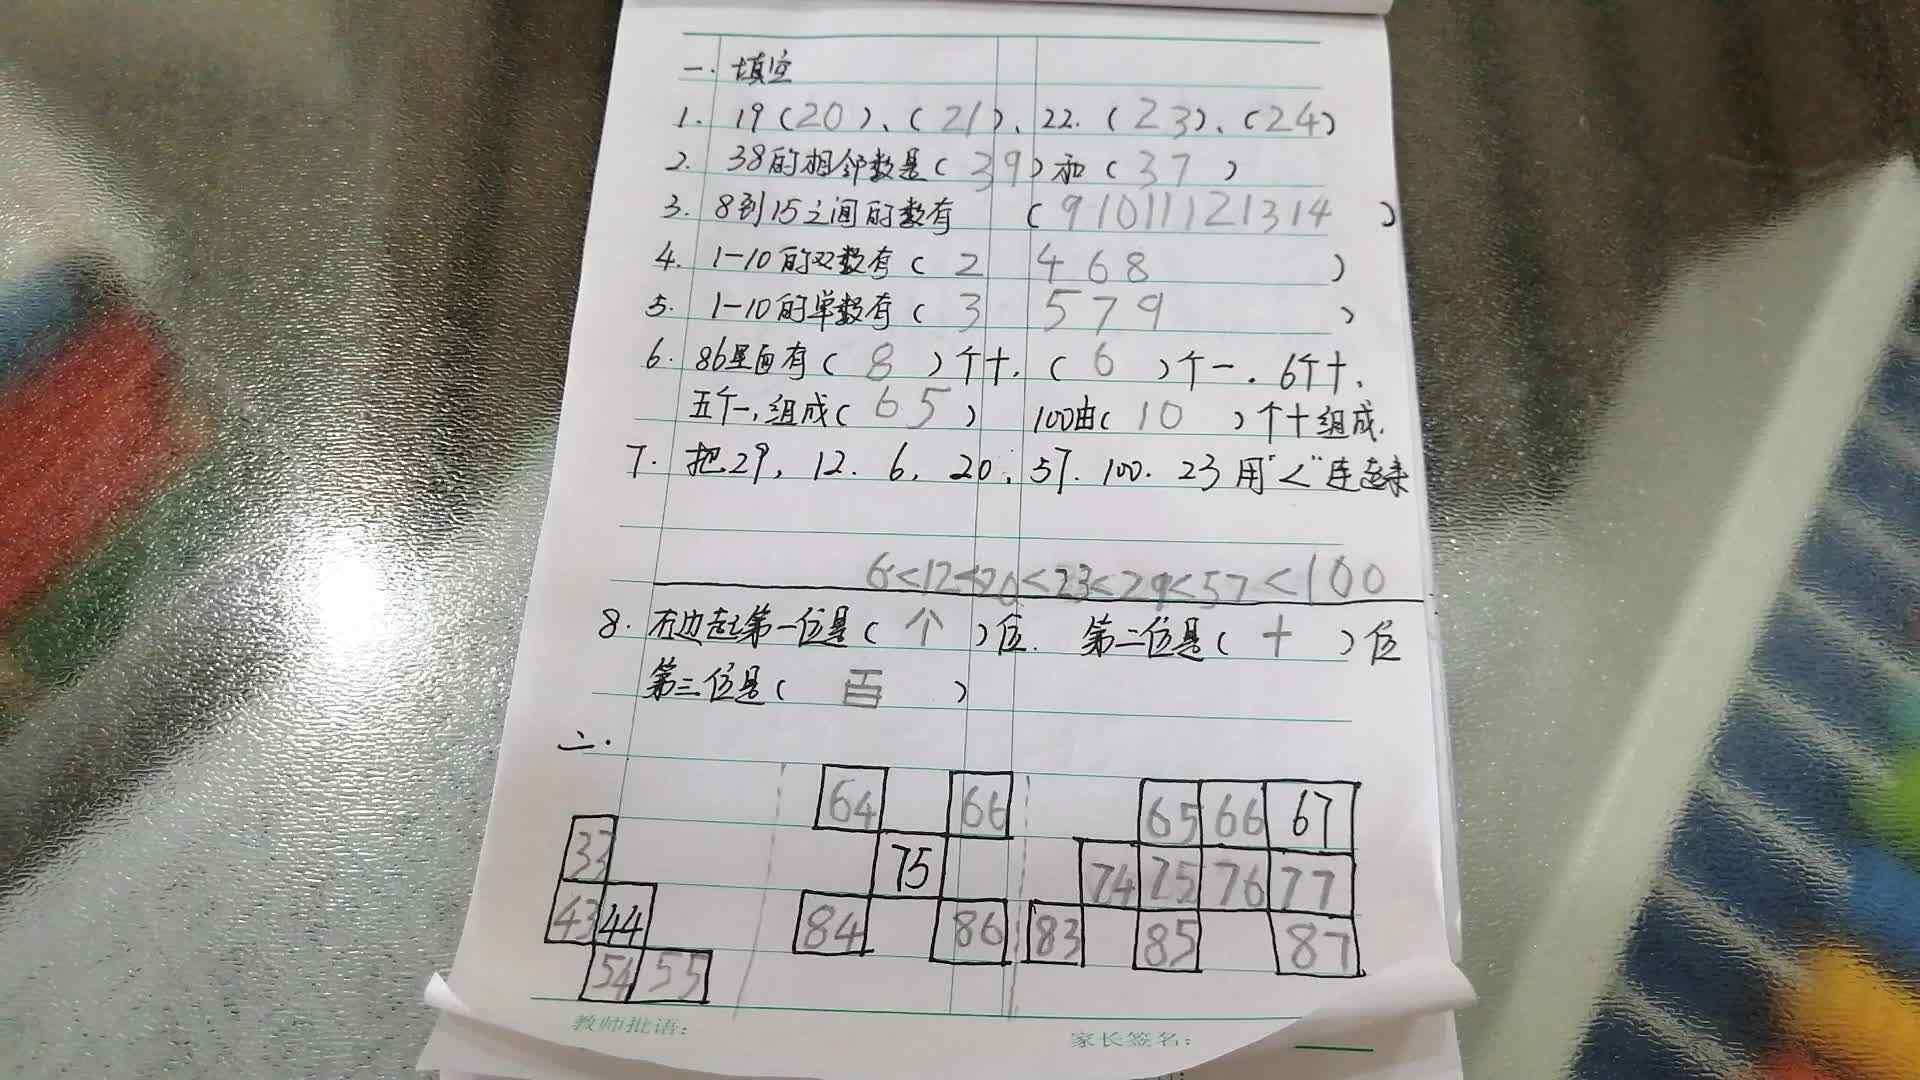 一. 填空
1. 19(20)、(21)、22.(23)、(24)
2. 38的相邻数是(39)和(37)
3. 8到15之间的数有 (9 10 11 12 13 14)
4. 1-10的双数有(2 4 6 8)
5. 1-10的单数有(3 5 7 9)
6. 86里面有(8)个十.(6)个一. 6个十、
五个一,组成(65) 100由(10)个十组成.
7. 把29, 12. 6, 20, 57. 100. 23用"<"连起来
6<12<20<23<29<57<100
8. 右边起第一位是(个)位. 第二位是(十)位
第三位是(百)
二.
64 66 65 66 67
33 75 74 75 76 77
43 44 84 86 83 85 87
54 55
教师批语:
家长签名: